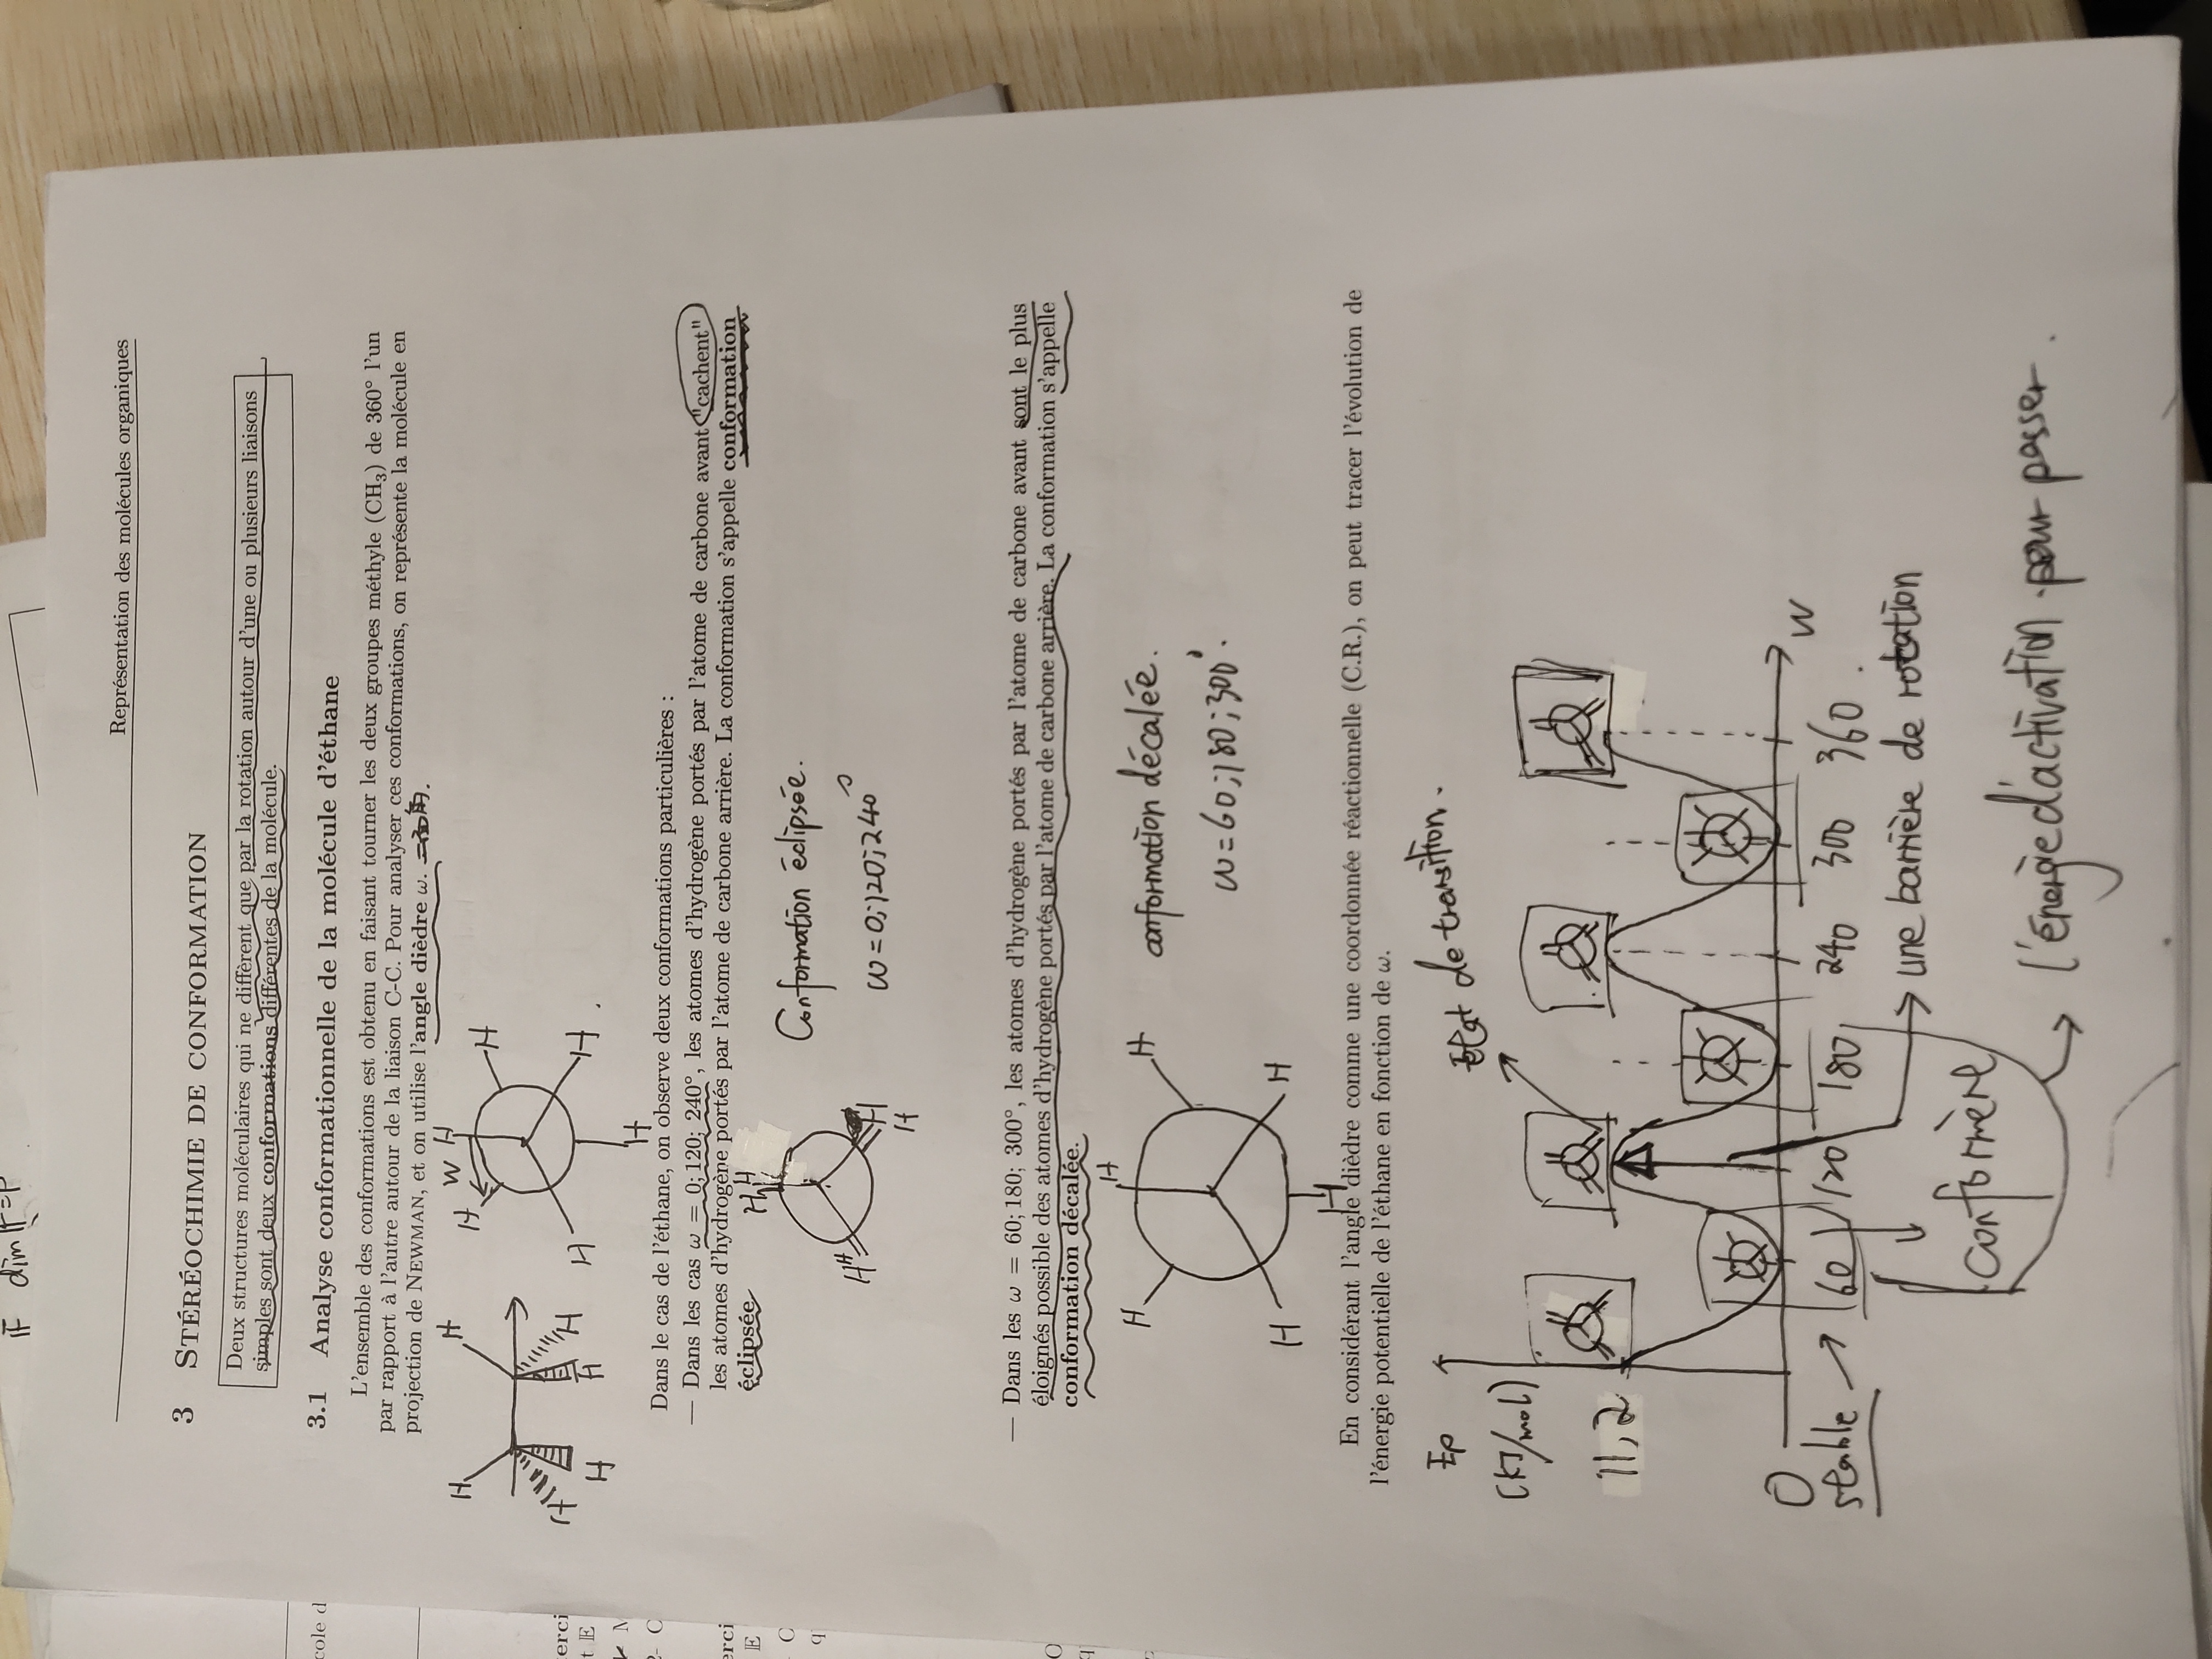 Représentation des molécules organiques
3 STÉRÉOCHIMIE DE CONFORMATION
Deux structures moléculaires qui ne diffèrent que par la rotation autour d'une ou plusieurs liaisons
simples sont deux conformations différentes de la molécule.
3.1 Analyse conformationnelle de la molécule d'éthane
L'ensemble des conformations est obtenu en faisant tourner les deux groupes méthyle (CH₃) de 360° l'un
par rapport à l'autre autour de la liaison C-C. Pour analyser ces conformations, on représente la molécule en
projection de NEWMAN, et on utilise l'angle dièdre ω.
H H H H H H
H W H H H H H
Dans le cas de l'éthane, on observe deux conformations particulières :
— Dans les cas ω = 0; 120; 240°, les atomes d'hydrogène portés par l'atome de carbone avant "cachent"
les atomes d'hydrogène portés par l'atome de carbone arrière. La conformation s'appelle conformation
éclipsée
Conformation éclipsée.
ω = 0; 120; 240°
H H H H H H
— Dans les ω = 60; 180; 300°, les atomes d'hydrogène portés par l'atome de carbone avant sont le plus
éloignés possible des atomes d'hydrogène portés par l'atome de carbone arrière. La conformation s'appelle
conformation décalée.
conformation décalée.
ω = 60; 180; 300°.
H H H H H H
En considérant l'angle dièdre comme une coordonnée réactionnelle (C.R.), on peut tracer l'évolution de
l'énergie potentielle de l'éthane en fonction de ω.
État de transition.
Ep
(kJ/mol)
11,2
W
0 60 120 180 240 300 360
stable
une barrière de rotation
conformère
l'énergie d'activation pour passer.
IF dim F=P
cole d
erci
t E
M
C
erci
E
C
q